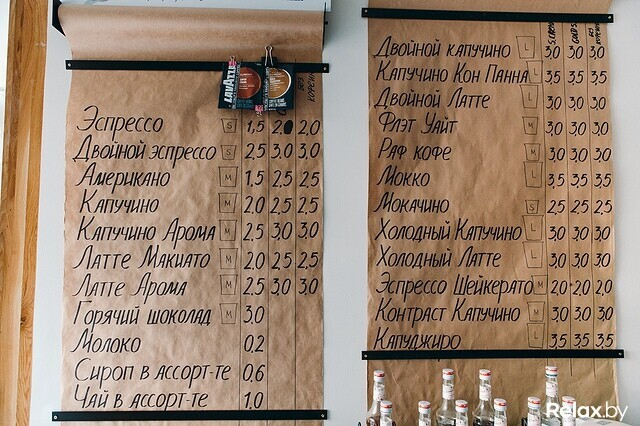 LAVAZZA
БЕЗ КОФЕИН
Эспрессо S 1,5 2,0 2,0
Двойной эспрессо S 2,5 3,0 3,0
Американо M 1,5 2,5 2,5
Капучино M 2,0 2,5 2,5
Капучино Арома M 2,5 3,0 3,0
Латте Макиато M 2,0 2,5 2,5
Латте Арома M 2,5 3,0 3,0
Горячий шоколад M 3,0
Молоко 0,2
Сироп в ассорт-те 0,6
Чай в ассорт-те 1,0
Двойной капучино L 3,0 3,0 3,0
Капучино Кон Панна L 3,5 3,5 3,5
Двойной Латте L 3,0 3,0 3,0
Флэт Уайт M 3,0 3,0 3,0
Раф кофе M 3,0 3,0 3,0
Мокко L 3,5 3,5 3,5
Мокачино S 2,5 2,5 2,5
Холодный Капучино L 3,0 3,0 3,0
Холодный Латте L 3,0 3,0 3,0
Эспрессо Шейкерато M 2,0 2,0 2,0
Контраст Капучино M 3,0 3,0 3,0
Капуджиро L 3,5 3,5 3,5
Relax.by